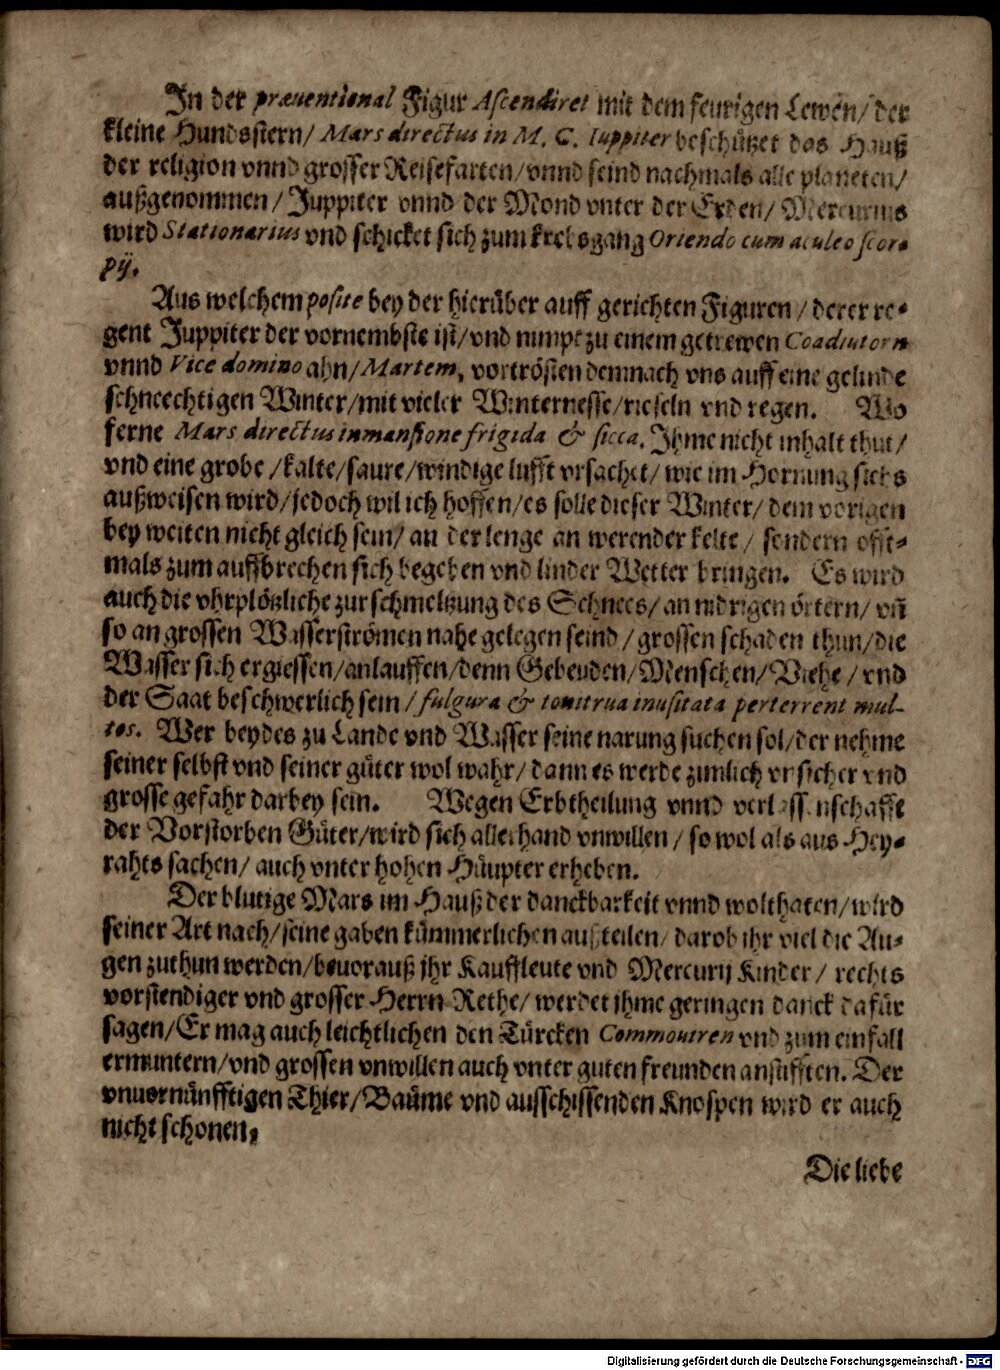 In der præuentional Figur Ascendiret mit dem feurigen Lewen/ der
kleine Hundsstern/ Mars directus in M. C. Iuppiter beschützet das Hauß
der religion vnnd grosser Reisefarten/ vnnd seind nachmals alle planeten/
außgenommen/ Juppiter vnnd der Mond vnter der Erden/ Mercurius
wird Stationarius vnd schicket sich zum krebsgang Oriendo cum aculeo scor⸗
pij.
Aus welchem posite bey der hierüber auff gerichten Figuren/ derer re⸗
gent Juppiter der vornembste ist/ vnd nimpt zu einem getrewen Coadiutorn
vnnd Vice domino ahn/ Martem, vortrösten demnach vns auff eine gelinde
schneechtigen Winter/ mit vieler Winternesse/ rieseln vnd regen. Wo
ferne Mars directus in mansione frigida & sicca. Ihme nicht inhalt thut/
vnd eine grobe/ kalte/ saure/ windige lufft vrsachet/ wie im Hornung sichs
außweisen wird/ jedoch wil ich hoffen/ es solle dieser Winter/ dem vorigen
bey weiten nicht gleich sein/ an der lenge an werender kelte/ sondern offt⸗
mals zum auffbrechen sich begeben vnd linder Wetter bringen. Es wird
auch die vhrplötzliche zurschmeltzung des Schnees/ an nidrigen örtern/ vñ
so an grossen Wasserströmen nahe gelegen seind/ grossen schaden thun/ die
Wasser sich ergiessen/ anlauffen/ denn Gebeuden/ Menschen/ Viehe/ vnd
der Saat beschwerlich sein/ fulgura & tonitrua inusitata perterrent mul-
tos. Wer beydes zu Lande vnd Wasser seine narung suchen sol/ der nehme
seiner selbst vnd seiner güter wol wahr/ dann es werde zimlich vnsicher vnd
grosse gefahr darbey sein. Wegen Erbtheilung vnnd verlassenschafft
der Vorstorben Güter/ wird sich allerhand vnwillen/ so wol als aus Hey⸗
rahts sachen/ auch vnter hohen Häupter erheben.
Der blutige Mars im Hauß der danckbarkeit vnnd wolthaten/ wird
seiner Art nach/ seine gaben kümmerlichen außteilen/ darob ihr viel die Au⸗
gen zuthun werden/ beuorauß jhr Kauffleute vnd Mercurij Kinder/ rechts
vorstendiger vnd grosser Herrn Rethe/ werdet jhme geringen danck dafür
sagen/ Er mag auch leichtlichen den Türcken Commouiren vnd zum einfall
ermuntern/ vnd grossen vnwillen auch vnter guten freunden anstifften. Der
vnuernünfftigen Thier/ Bäume vnd ausschissenden Knospen wird er auch
nicht schonen,
Die liebe
Digitalisierung gefördert durch die Deutsche Forschungsgemeinschaft - DFG